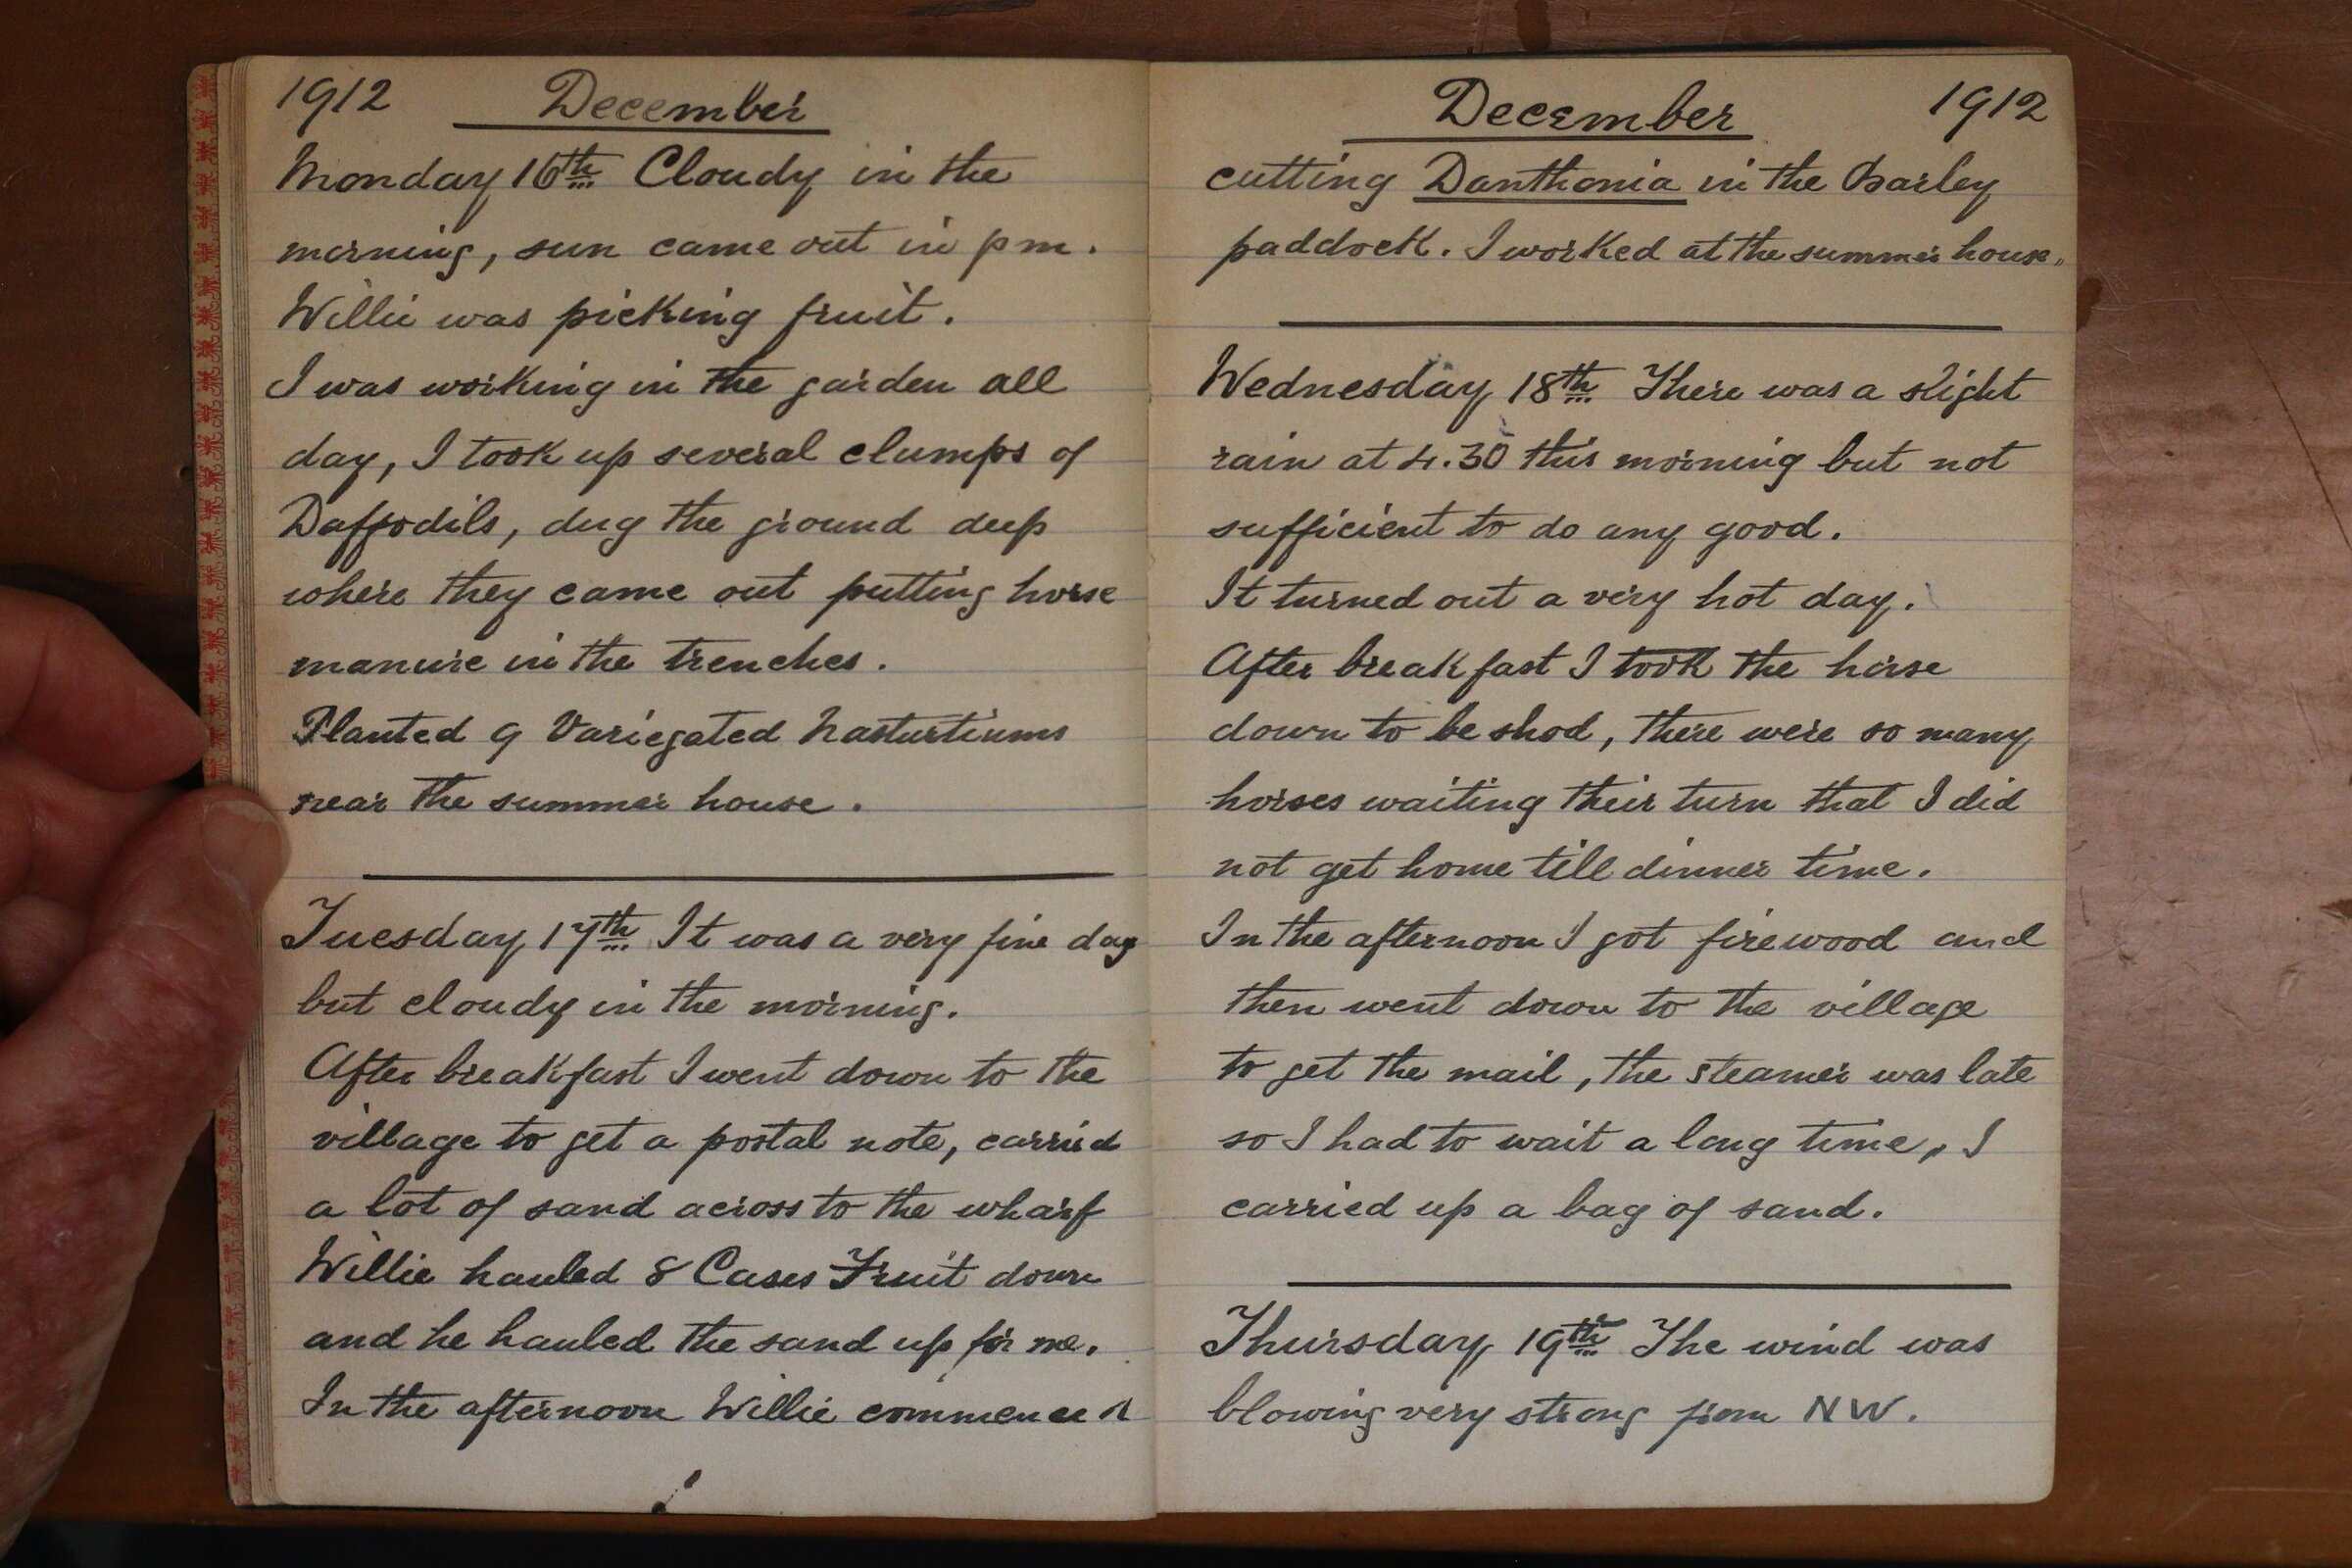 1912 December
Monday 16th Cloudy in the
morning, sun came out in pm.
Willie was picking fruit.
I was working in the garden all
day, I took up several clumps of
Daffodils, dug the ground deep
where they came out putting horse
manure in the trenches.
Planted 9 Variegated Nasturtiums
near the summer house.
Tuesday 17th It was a very fine day
but cloudy in the morning.
After breakfast I went down to the
village to get a postal note, carried
a lot of sand across to the wharf
Willie hauled 8 Cases Fruit down
and he hauled the sand up for me.
In the afternoon Willie commenced
December 1912
cutting Danthonia in the Barley
paddock. I worked at the summer house.
Wednesday 18th There was a slight
rain at 4.30 this morning but not
sufficient to do any good.
It turned out a very hot day.
After breakfast I took the horse
down to be shod, there were so many
horses waiting their turn that I did
not get home till dinner time.
In the afternoon I got firewood and
then went down to the village
to get the mail, the steamer was late
so I had to wait a long time, I
carried up a bag of sand.
Thursday 19th The wind was
blowing very strong from NW.